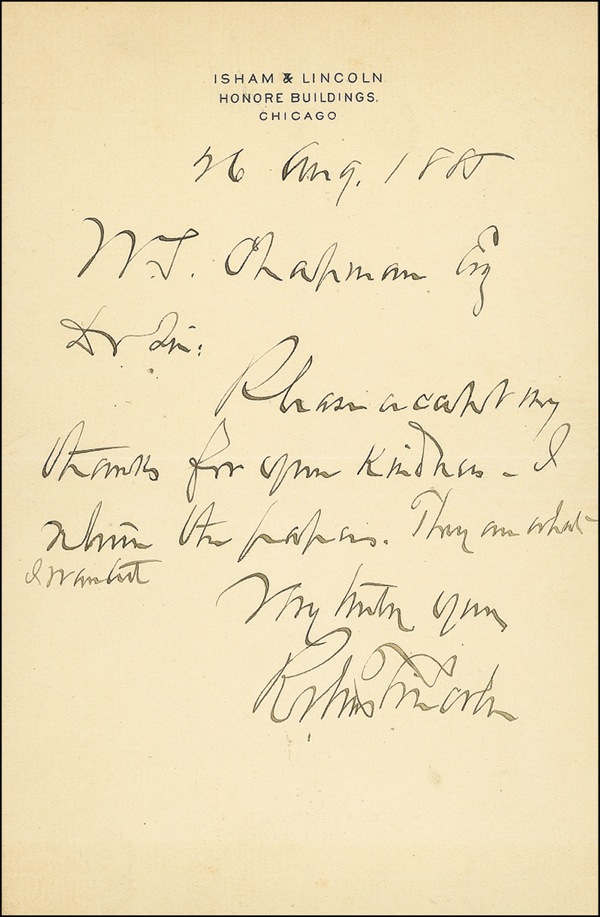 ISHAM & LINCOLN
HONORE BUILDINGS.
CHICAGO
26 Aug. 1885
W.T. Chapman Esq
Dr Sir:
Please accept my
thanks for your kindness - I
return the papers. They are what
I wanted
Very truly yours
Robert T. Lincoln